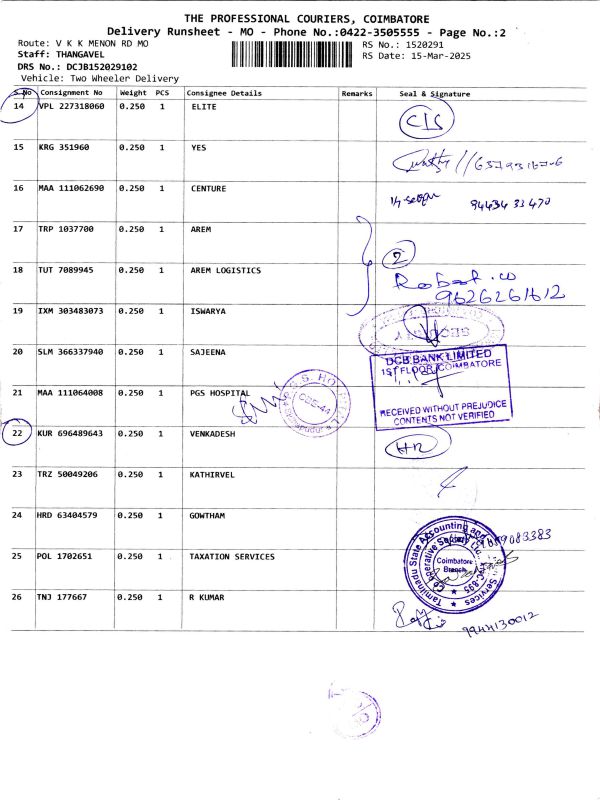 THE PROFESSIONAL COURIERS, COIMBATORE
Delivery Runsheet - MO - Phone No.:0422-3505555 - Page No.:2
Route: V K K MENON RD MO
RS No.: 1520291
Staff: THANGAVEL
RS Date: 15-Mar-2025
DRS No.: DCJB152029102
Vehicle: Two Wheeler Delivery
S No Consignment No Weight PCS Consignee Details Remarks Seal & Signature
14 VPL 227318060 0.250 1 ELITE
15 KRG 351960 0.250 1 YES
16 MAA 111062690 0.250 1 CENTURE 94434 33470
17 TRP 1037700 0.250 1 AREM 2
18 TUT 7089945 0.250 1 AREM LOGISTICS
9626261612
19 IXM 303483073 0.250 1 ISWARYA
20 SLM 366337940 0.250 1 SAJEENA
DCB BANK LIMITED
1ST FLOOR, COIMBATORE
21 MAA 111064008 0.250 1 PGS HOSPITAL
RECEIVED WITHOUT PREJUDICE
CONTENTS NOT VERIFIED
22 KUR 696489643 0.250 1 VENKADESH HR
23 TRZ 50049206 0.250 1 KATHIRVEL
24 HRD 63404579 0.250 1 GOWTHAM
Tamilnadu State Accounting and
Services
Coimbatore
Branch
25 POL 1702651 0.250 1 TAXATION SERVICES
26 TNJ 177667 0.250 1 R KUMAR
9944130012